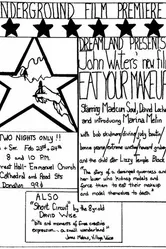 UNDERGROUND FILM PREMIERE
DREAMLAND PRESENTS
John Waters' new film
EAT YOUR MAKEUP
Starring Maelcum Soul, David Lochary
and introducing Marina Melin
with bob skidmore, divine, berry
and the child star Lizzy Temple Black
"The story of a deranged governess and
her lover who kidnap models and
force them to eat their makeup
and model themselves to death."
TWO NIGHTS ONLY!!
Feb. 23rd & 24th
8 and 10 P.M.
Great Hall - Emmanuel Church
Cathedral and Read Sts
Donation 99¢
ALSO
"Short Circuit" by the Byrold
David Wise
"Bits and moments of fine creative
expression... a small wonderment"
Jonas Mekas, Village Voice